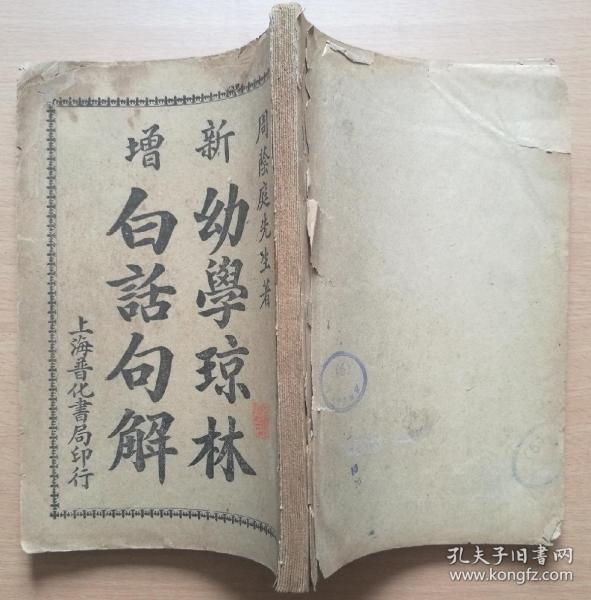 周蔭庭先生著
新增
幼學琼林
白話句解
上海普化書局印行
孔夫子旧書网
www.kongfz.com